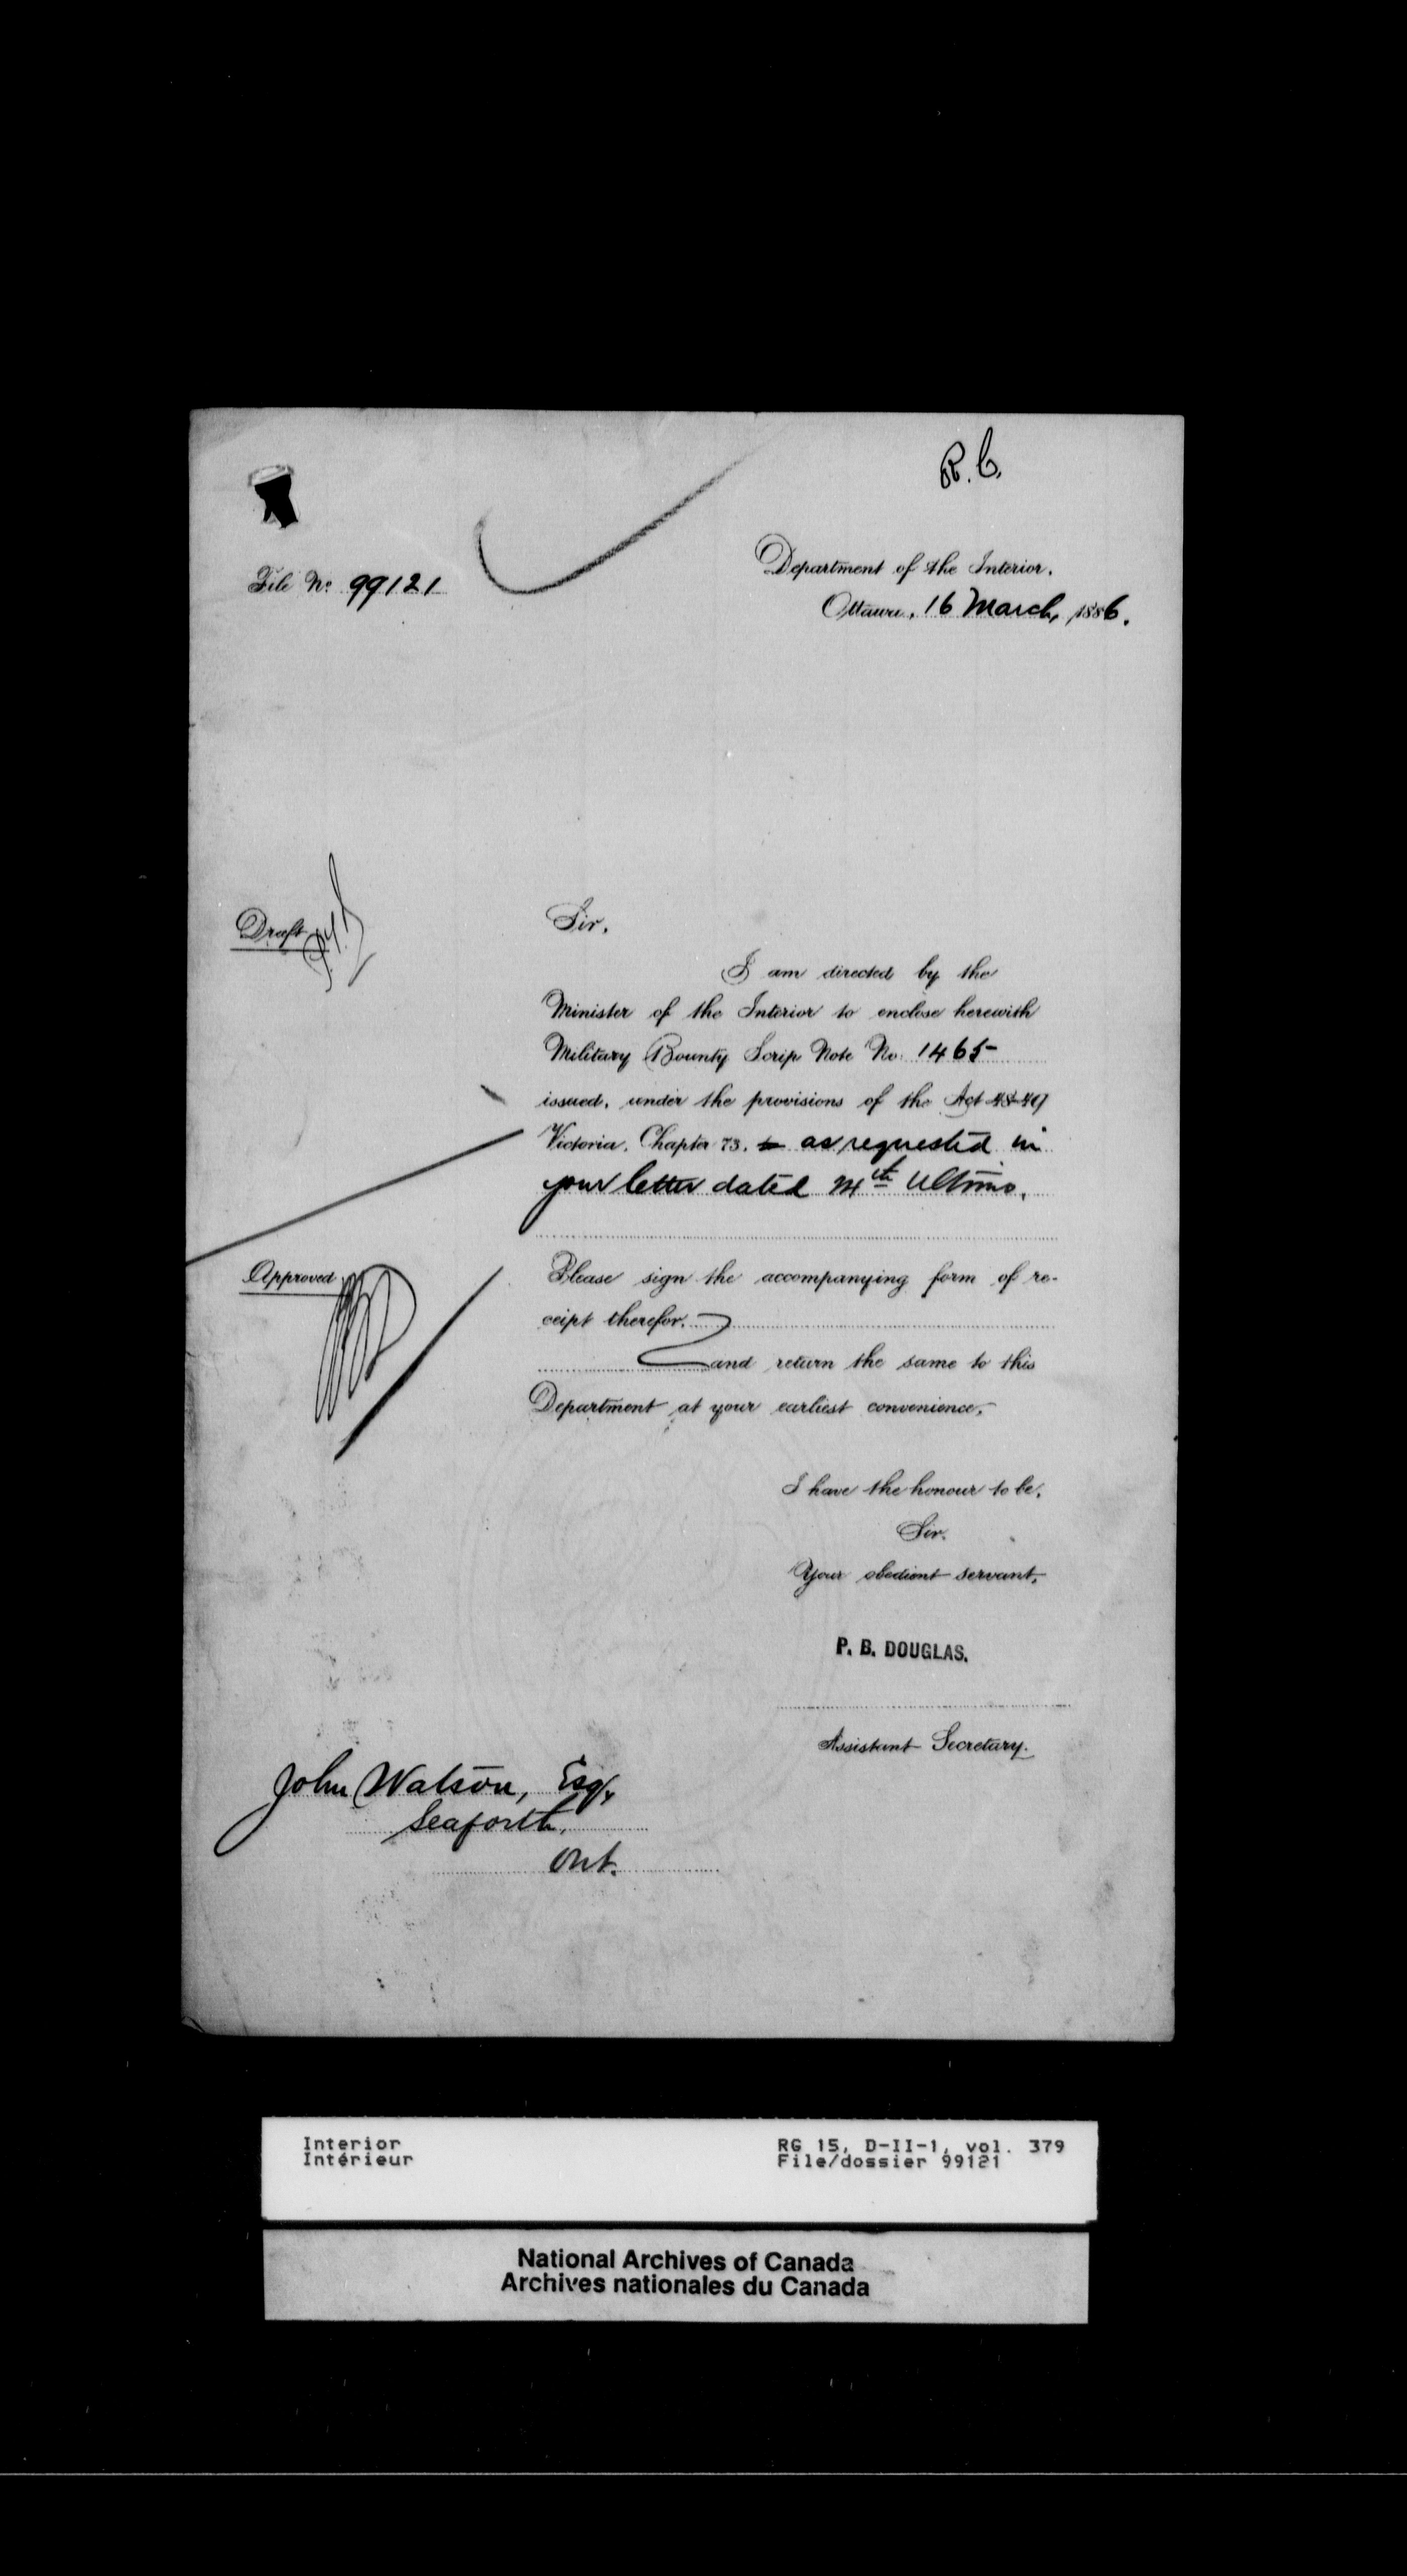 R.C.
File No. 99121
Department of the Interior.
Ottawa, 16 March, 1886.
Draft
Sir,
I am directed by the
Minister of the Interior to enclose herewith
Military Bounty Scrip Note No. 1465
issued, under the provisions of the Act 48-49
Victoria, Chapter 73, as requested in
your letter dated ultimo.
Approved
Please sign the accompanying form of re-
ceipt therefor,
and return the same to this
Department at your earliest convenience,
I have the honour to be,
Sir,
Your obedient servant,
P. B. DOUGLAS.
Assistant Secretary.
John Watson, Esq.,
Seaforth,
Ont.
Interior
Intérieur
RG 15, D-II-1, vol. 379
File/dossier 99121
National Archives of Canada
Archives nationales du Canada